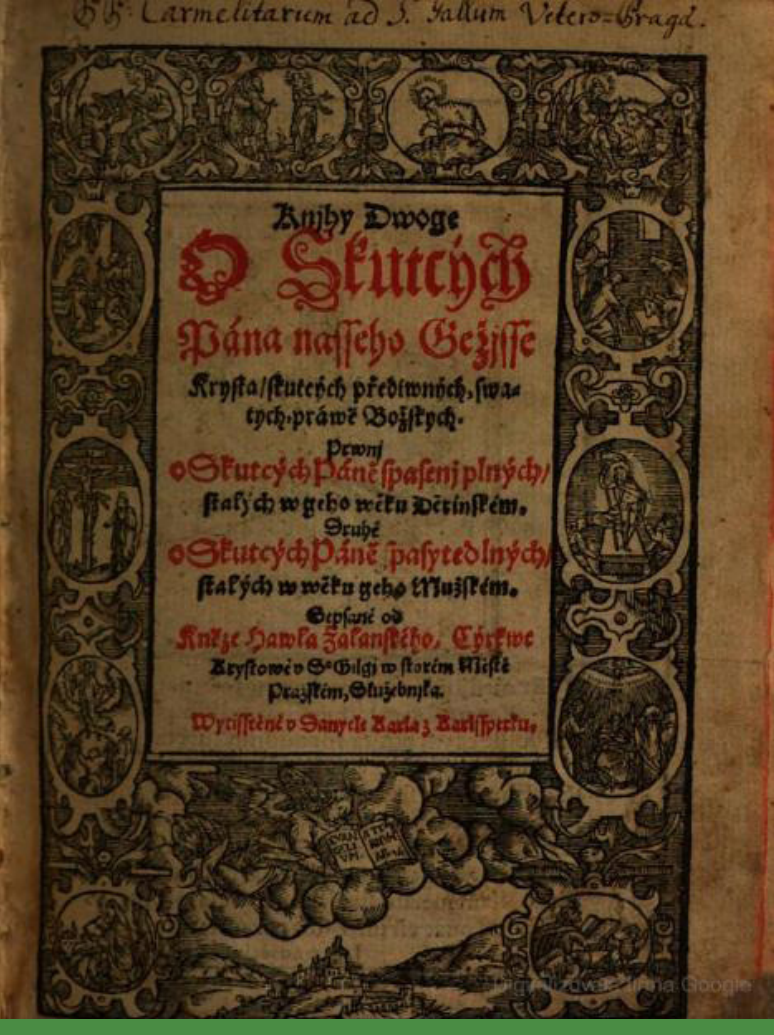 Carmelitarum ad S. Gallum Vetero-Pragæ.
Knjhy Dwoge
O Skutcých
Pána nasseho Gežjsse
Krysta/skutcých přediwných, swa-
tych, práwě Božských.
Prwnj
o Skutcých Páně spasenj plných/
stalých w geho wěku Dětinském.
Druhé
o Skutcých Páně spasytedlných/
stalých w wěku geho Mužském.
Sepsané od
Kněze Hawla Žalanského, Cýrkwe
Krystowé v S° Gilgj w starém Městě
Pražském, Služebnjka.
Wytisstěné v Danyele Karla z Karlsspecku.
EVAN ÆTER
GELI NVM
VM
Digitalizowała firma Google